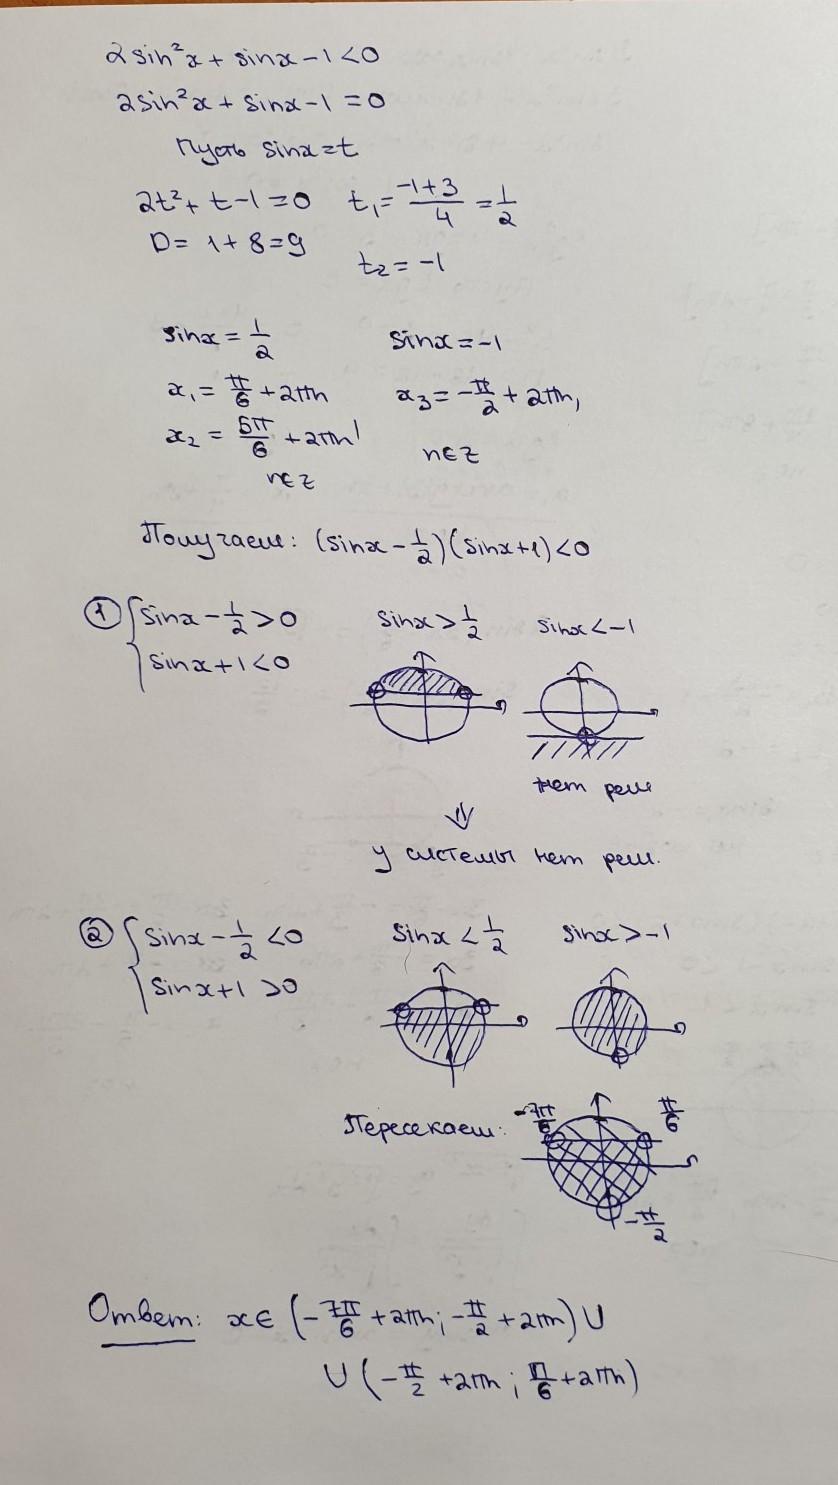 2sin²x + sinx - 1 < 0
2sin²x + sinx - 1 = 0
Пусть sinx = t
2t² + t - 1 = 0   t₁ = (-1+3)/4 = 1/2
D = 1 + 8 = 9
t₂ = -1
sinx = 1/2   sinx = -1
x₁ = π/6 + 2πn   x₃ = -π/2 + 2πn,
x₂ = 5π/6 + 2πn,   n∈Z
n∈Z
Получаем: (sinx - 1/2)(sinx + 1) < 0
① { sinx - 1/2 > 0   sinx > 1/2   sinx < -1
sinx + 1 < 0
нет реш
⇓
у системы нет реш.
② { sinx - 1/2 < 0   sinx < 1/2   sinx > -1
sinx + 1 > 0
Пересекаем:   -7π/6   π/6
-π/2
Ответ: x∈ (-7π/6 + 2πn; -π/2 + 2πn) ∪
∪ (-π/2 + 2πn; π/6 + 2πn)